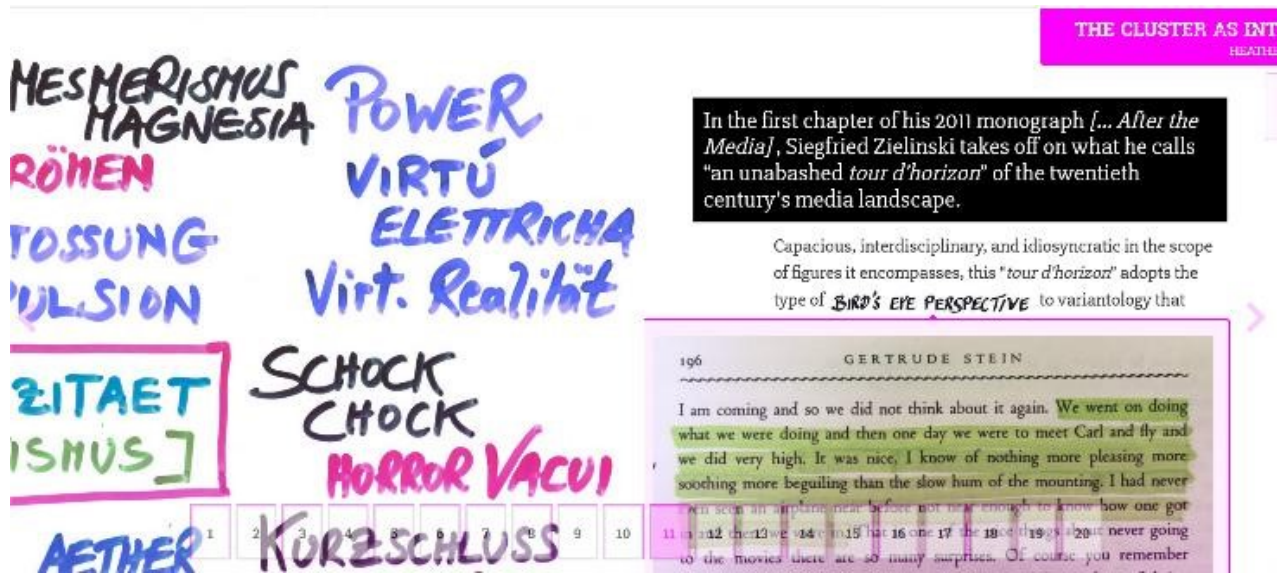 THE CLUSTER AS INT
HEATHE
MESMERISMUS
MAGNESIA
RÖHEN
TOSSUNG
ULSION
ZITAET
ISMUS]
AETHER
POWER
VIRTÚ
ELETTRICHA
Virt. Realität
SCHOCK
CHOCK
HORROR VACUI
KURZSCHLUSS
In the first chapter of his 2011 monograph [... After the
Media], Siegfried Zielinski takes off on what he calls
"an unabashed tour d'horizon" of the twentieth
century's media landscape.
Capacious, interdisciplinary, and idiosyncratic in the scope
of figures it encompasses, this "tour d'horizon" adopts the
type of BIRD'S EYE PERSPECTIVE to variantology that
196 GERTRUDE STEIN
I am coming and so we did not think about it again. We went on doing
what we were doing and then one day we were to meet Carl and fly and
we did very high. It was nice, I know of nothing more pleasing more
soothing more beguiling than the slow hum of the mounting. I had never
even seen an airplane near before not near enough to know how one got
in and then we were in. That is one of the nice things about never going
to the movies there are so many surprises. Of course you remember
1 2 3 4 5 6 7 8 9 10 11 12 13 14 15 16 17 18 19 20